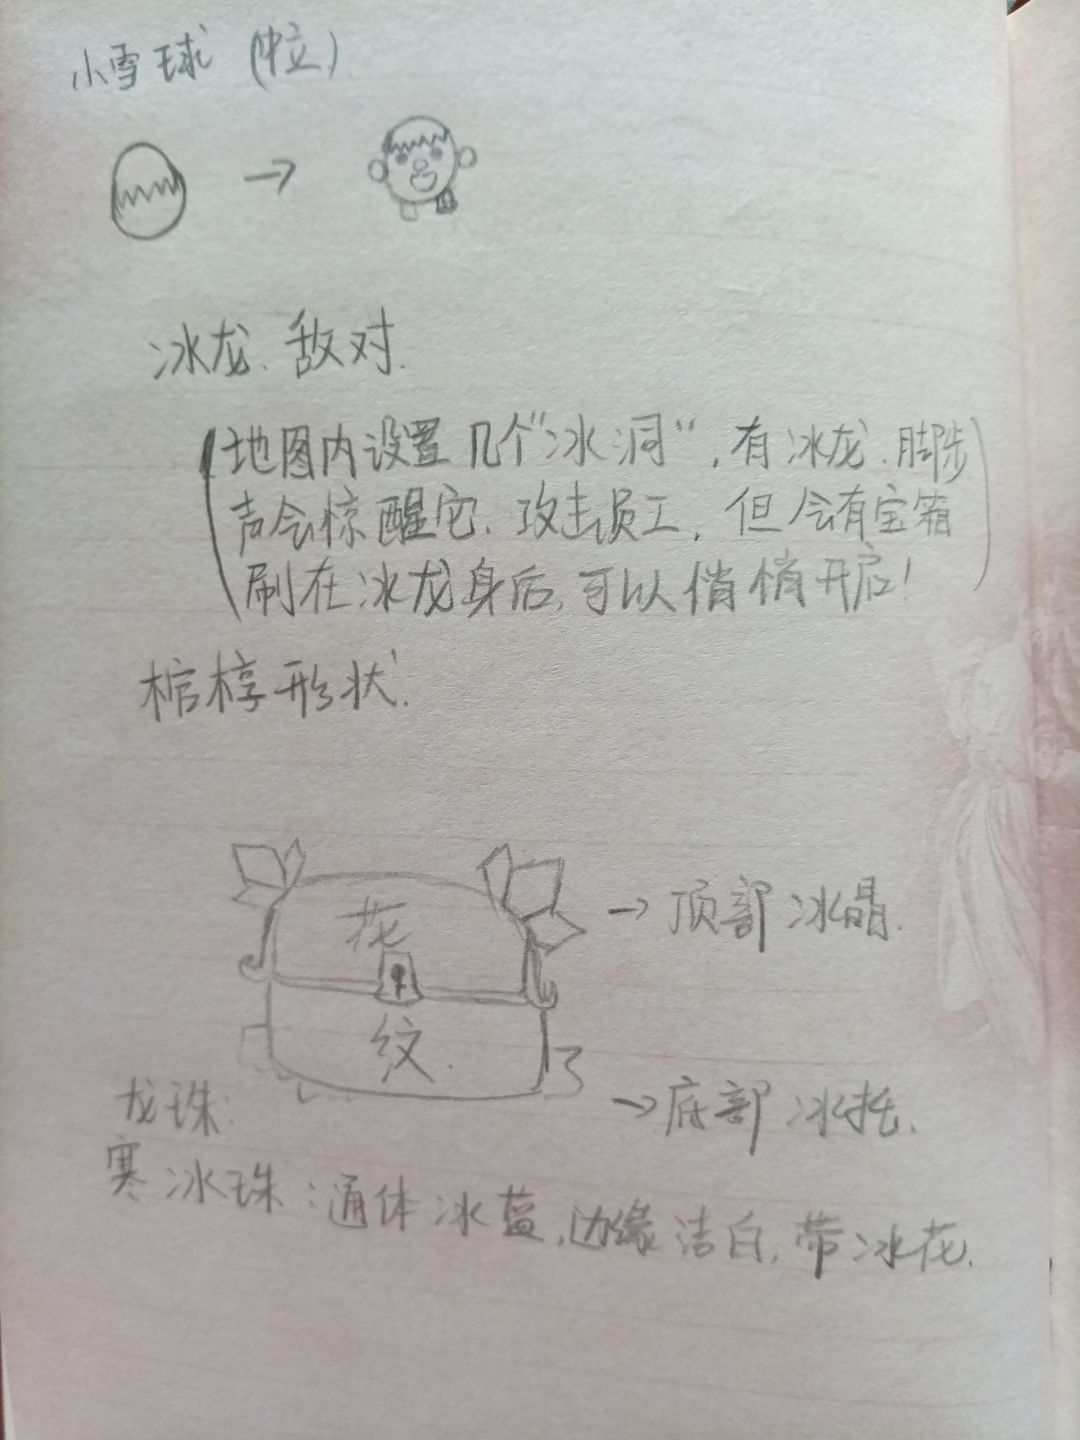 小雪球 (中立)
→
冰龙. 敌对.
(地图内设置几个“冰洞”, 有冰龙. 脚步
声会惊醒它. 攻击员工, 但会有宝箱
刷在冰龙身后, 可以悄悄开启!)
棺椁形状.
花
→顶部冰晶.
纹.
龙珠:
→底部冰托.
寒冰珠:通体冰蓝,边缘洁白,带冰花.